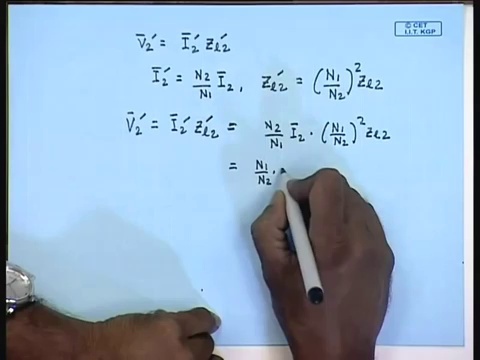 © CET
I.I.T. KGP
V̄₂′ = Ī₂′ Zₗ₂′
Ī₂′ = N₂/N₁ Ī₂, Zₗ₂′ = (N₁/N₂)² Zₗ₂
V̄₂′ = Ī₂′ Zₗ₂′ = N₂/N₁ Ī₂ · (N₁/N₂)² Zₗ₂
= N₁/N₂ ·